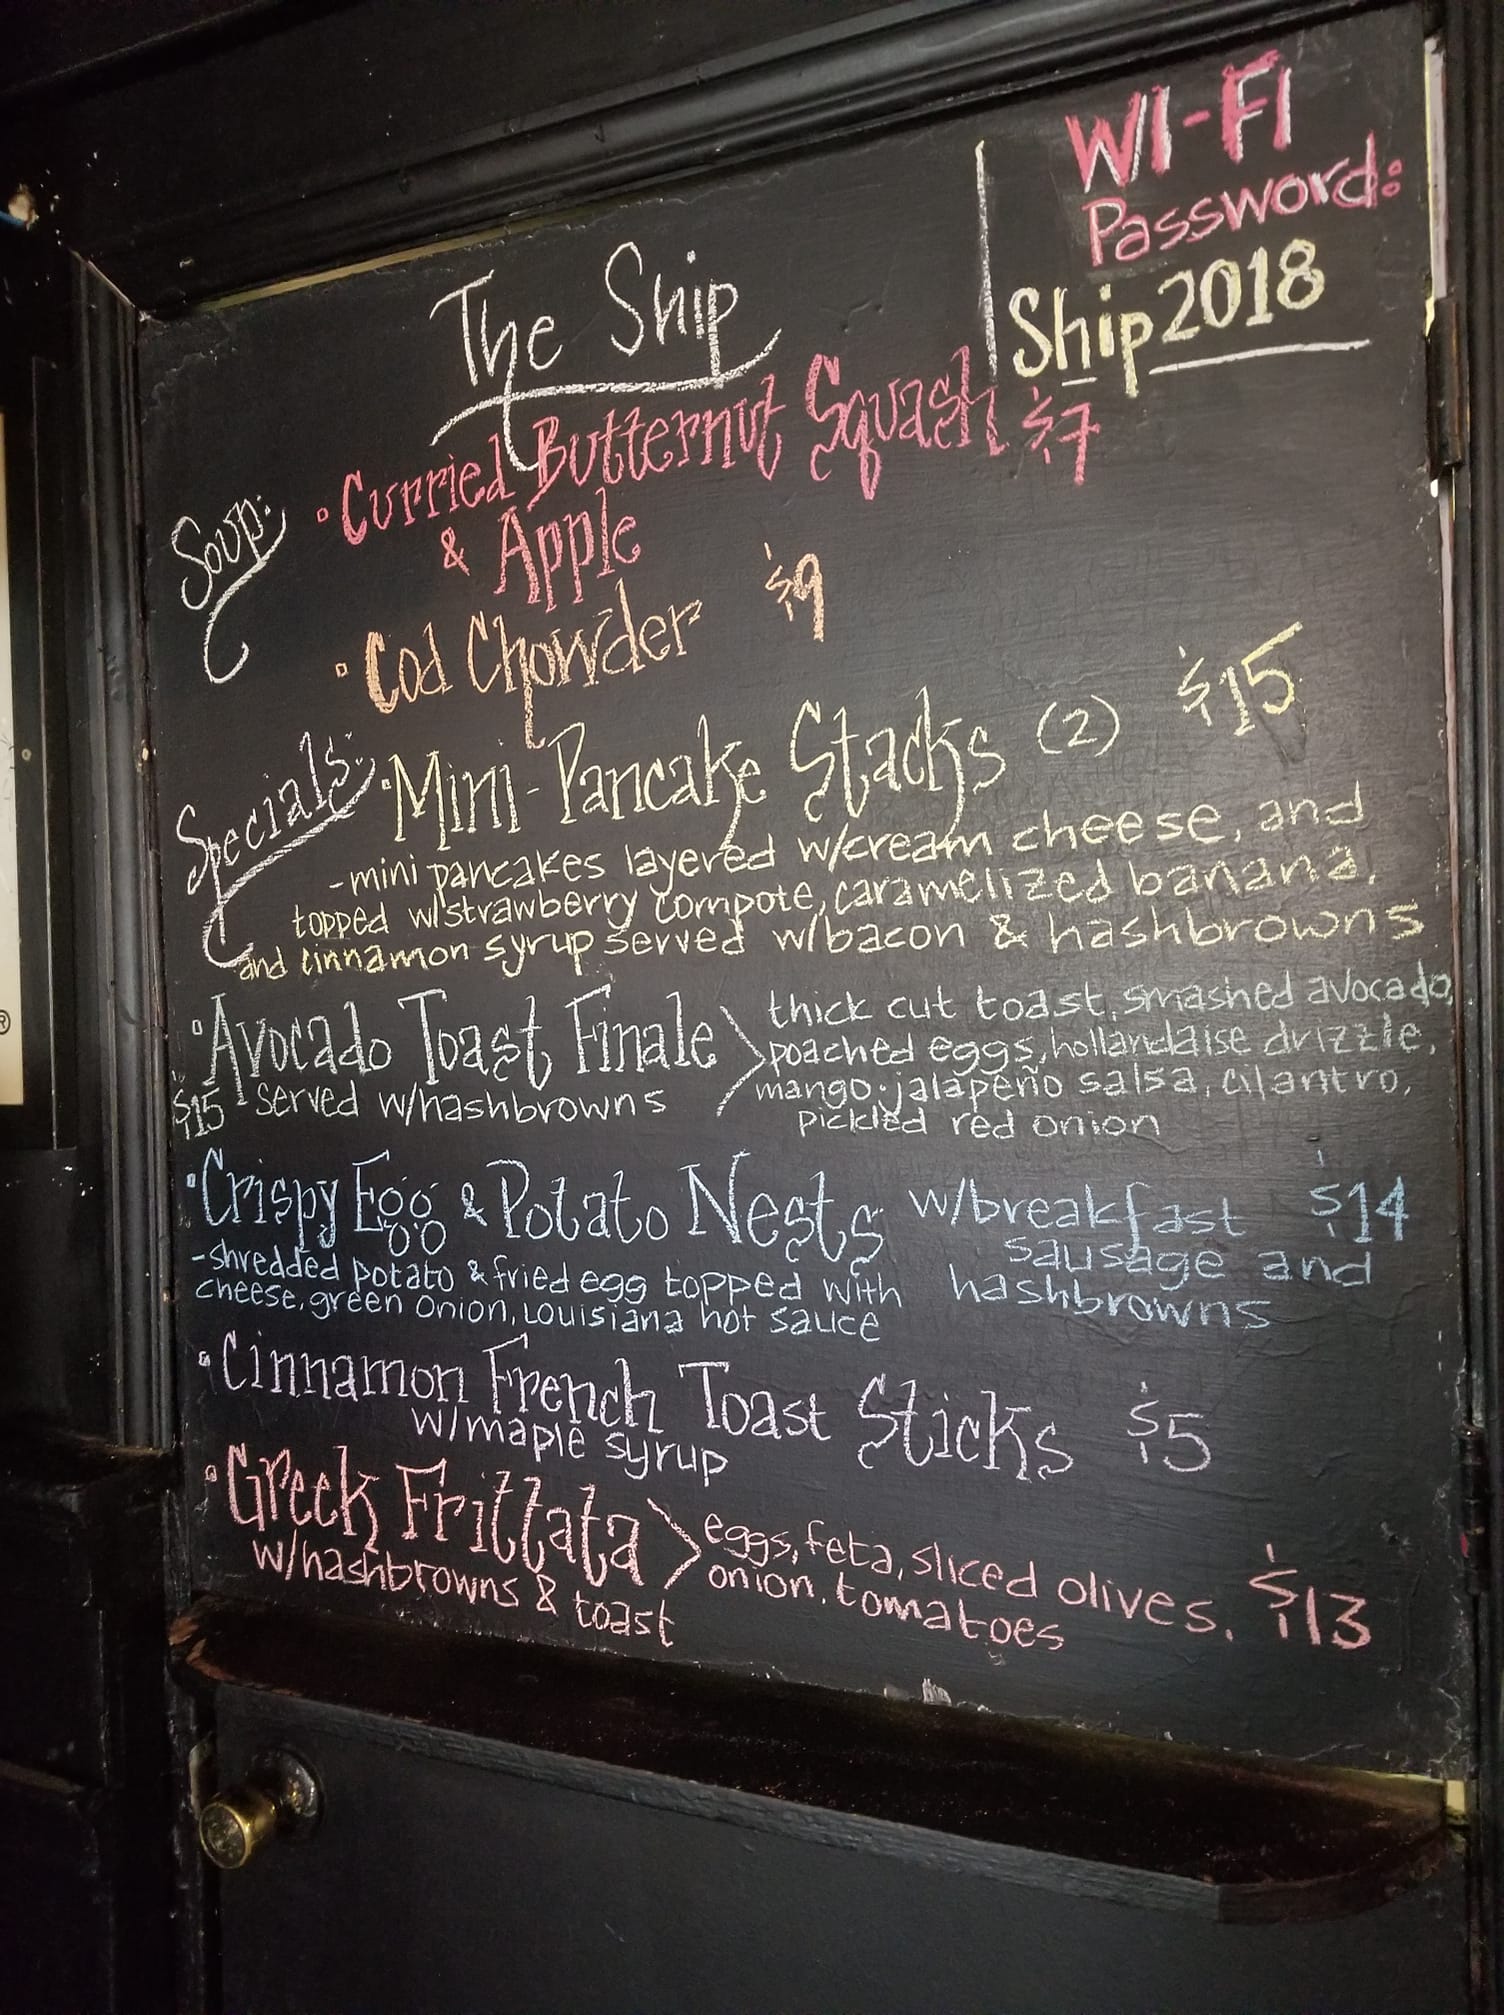 WI-FI
Password:
Ship2018
The Ship
Soup:
• Curried Butternut Squash $7
& Apple
• Cod Chowder $9
Specials:
• Mini-Pancake Stacks (2) $15
-mini pancakes layered w/cream cheese, and
topped w/strawberry compote, caramelized banana,
and cinnamon syrup served w/bacon & hashbrowns
• Avocado Toast Finale
$15 served w/hashbrowns
thick cut toast, smashed avocado,
poached eggs, hollandaise drizzle,
mango-jalapeño salsa, cilantro,
pickled red onion
• Crispy Egg & Potato Nests w/breakfast $14
sausage and
hashbrowns
-shredded potato & fried egg topped with
cheese, green onion, Louisiana hot sauce
• Cinnamon French Toast Sticks $5
w/maple syrup
• Greek Frittata
w/hashbrowns & toast
eggs, feta, sliced olives, $13
onion, tomatoes
®